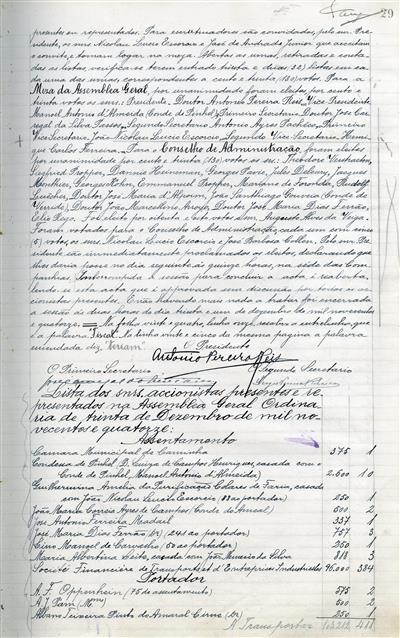 29
presentes ou representados. Para escrutinadores são convidados, pelo snr. Pre-
sidente, os snrs. Nicolau Lucio Escorcio e José de Andrade Junior que acceitam
o convite, e tomam logar na meza. Abertas as urnas, retiradas e conta-
das as listas, verifica-se terem entrado trinta e duas (32) listas em ca-
da uma das urnas, correspondentes a cento e trinta (130) votos. Para a
Meza da Assembléa Geral, por unanimidade foram eleitos, por cento e
trinta votos os snrs.: Presidente, Doutor Antonio Pereira Reis = Vice Presidente
Manoel Antonio d'Almeida (Conde de Pinhel) = Primeiro Secretario, Doutor José Car-
regal da Silva Passos = Segundo Secretario Antonio Ayres Pacheco = Primeiro
Vice Secretario João Nicolau Lucio Escorcio = Segundo Vice Secretario, Henri-
que Carlos Ferreira. = Para o Conselho de Administração, foram eleitos
por unanimidade por cento e trinta (130) votos os snr.: Theodore
Siegfried Propper, Dannie Heineman, Georges Pavie, Jules Deleury, Jacques
Menthier, Georges Kohn, Emmanuel Propper, Mariano de Foronda, Rudolf
Luescher, Doutor José Maria d'Alpoim, João Santhiago Gouveia (Conde de
), Doutor João Marcellino Arroyo, Doutor José Maria Dias Ferrão,
Celio Rego. Foi eleito por oitenta e oito votos o snr. Augusto Alves da Veiga.
Foram votados para o Conselho de Administração, cada um com cinco
(5) votos, os snrs. Nicolau Lucio Escorcio e José Barbosa Collen. Pelo snr. Pre-
sidente são immediatamente proclamados os eleitos, declarando que
lhes daria posse no dia seguinte ás quinze horas, na séde das Com-
panhias. Interrompida a sessão para concluir a acta é reaberta,
lendo-se esta acta que é approvada sem discussão por todos os ac-
cionistas presentes. E não havendo mais nada a tratar foi encerrada
a sessão ás duas horas do dia trinta e um de dezembro de mil novecentos
e quatorze. = Na folha vinte e quatro, linha onze, resalvo a entrelinha, que
é a palavra "Fiscal". Na linha vinte e cinco da mesma pagina a palavra
emendada diz, "teriam".
O Presidente
Antonio Pereira Reis
O Primeiro Secretario
O Segundo Secretario
Lista dos snrs. accionistas presentes e re-
presentados na Assembléa Geral Ordina-
ria de trinta de Dezembro de mil no-
vecentos e quatorze:
Assentamento
Camara Municipal de Caminha 375 1
Condessa de Pinhel D. Luiza de Campos Henriques, casada com o
Conde de Pinhel, Manoel Antonio d'Almeida) 2.600 10
Guilhermina Amelia da Purificação Colares de Faria, casada
com João Nicolau Lucio Escorcio (11 ao portador) 250 1
João Maria Correia Ayres de Campos (Conde do Ameal) 500 2
José Antonio Ferreira Madail 337 1
José Maria Dias Ferrão (Dr) (241 ao portador) 757 3
Livino Manoel de Carvalho (50 ao portador) 250 1
Maria Albertina Leite, casada com João da Silva 818 3
Societé Financière de Transports et d'Entreprises Industrielles 96.000 384
Portador
A. F. Oppenheim (75 de assentamento) 575 2
A. J. Pam (Mons) 500 2
Alvaro Teixeira Pinto do Amaral Cirne (Dr) 250 1
A Transportar 103212 411